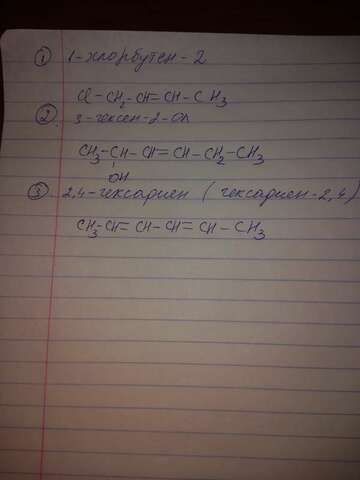 ① 1-хлорбутен-2
Cl-CH₂-CH=CH-CH₃
② 3-гексен-2-ол
CH₃-CH-CH=CH-CH₂-CH₃
OH
③ 2,4-гексадиен (гексадиен-2,4)
CH₃-CH=CH-CH=CH-CH₃